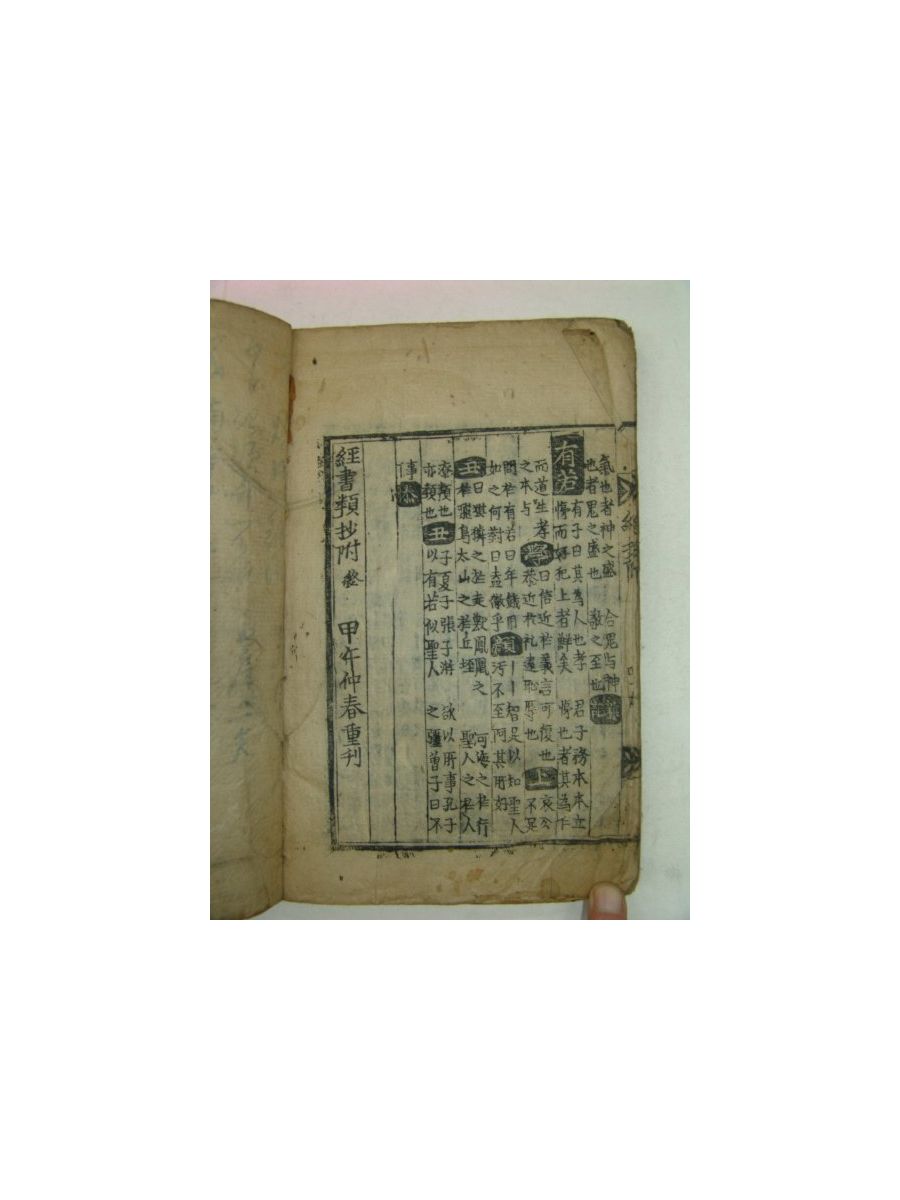 氣也者神之盛 合鬼与神
也者鬼之盛也 敎之至也 禮記
有若 有子曰其為人也孝 君子務本本立
悌而好犯上者鮮矣 悌也者其為仁
而道生孝 學 曰信近於義言可復也 上 哀公
之本与 恭近於礼遠恥辱也 不足
問於有若曰年饑用 智足以知聖人
如之何對曰盍徹乎 汚不至阿其所好
丑 曰麒麟之於走獸鳳凰之 河海之於行
於飛鳥太山之於丘垤 聖人之於人
類也 子夏子張子游 欲以所事孔子
亦類也 丑 以有若似聖人 之彊曾子曰不
事
經書類抄附 終 甲午仲春重刊